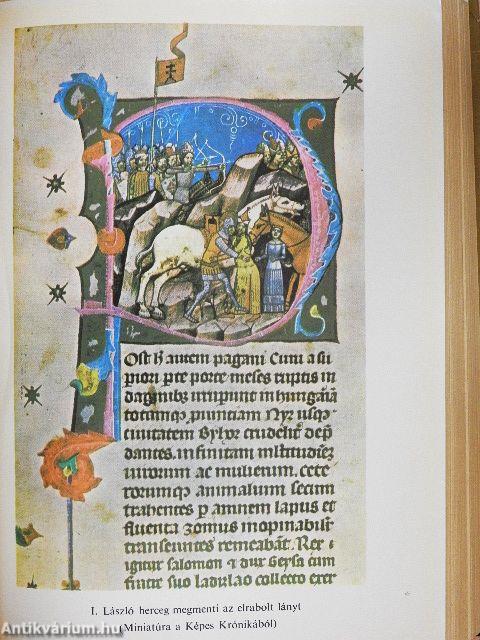 Ost h autem pagani Cuni a su
piori pte porte meses ruptis in
daginib; irrupunt in hungaia
totamq; puinciam Nyr usq;
ciuitatem Byhor crudelit dep
dantes. infinitam mltitudiez
uirorum ac mulierum. cete
rorumq; animalum secum
trahentes p amnem lapus et
fluenta zomus inopinabilit
transeuntes remeabat. Rex
igitur salomon & dux Geysa cum
fratre suo ladizlao collecto exer
I. László herceg megmenti az elrabolt lányt
(Miniatúra a Képes Krónikából)
Antikvárium.hu